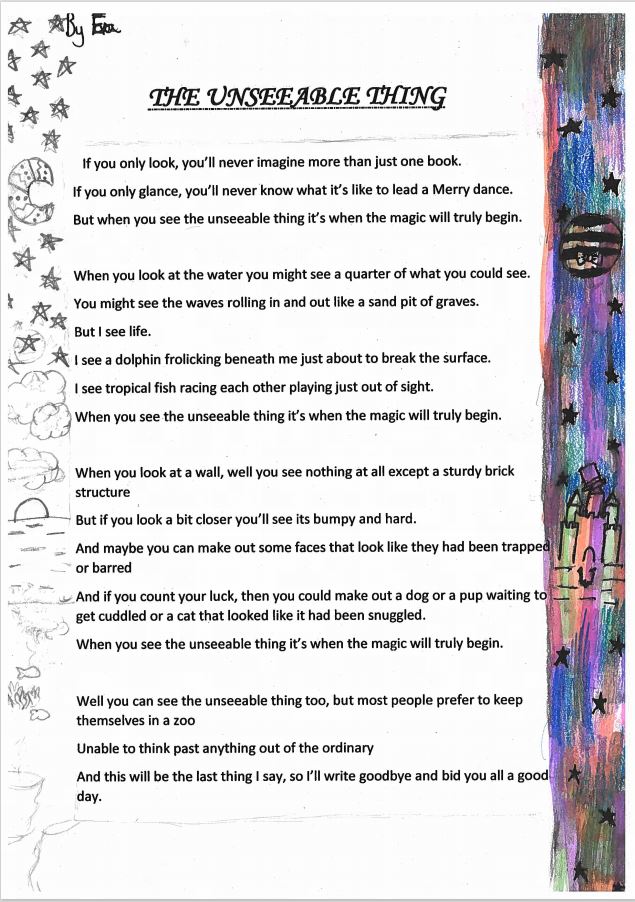 By Eva
THE UNSEEABLE THING
If you only look, you'll never imagine more than just one book.
If you only glance, you'll never know what it's like to lead a Merry dance.
But when you see the unseeable thing it's when the magic will truly begin.
When you look at the water you might see a quarter of what you could see.
You might see the waves rolling in and out like a sand pit of graves.
But I see life.
I see a dolphin frolicking beneath me just about to break the surface.
I see tropical fish racing each other playing just out of sight.
When you see the unseeable thing it's when the magic will truly begin.
When you look at a wall, well you see nothing at all except a sturdy brick
structure
But if you look a bit closer you'll see its bumpy and hard.
And maybe you can make out some faces that look like they had been trapped
or barred
And if you count your luck, then you could make out a dog or a pup waiting to
get cuddled or a cat that looked like it had been snuggled.
When you see the unseeable thing it's when the magic will truly begin.
Well you can see the unseeable thing too, but most people prefer to keep
themselves in a zoo
Unable to think past anything out of the ordinary
And this will be the last thing I say, so I'll write goodbye and bid you all a good
day.